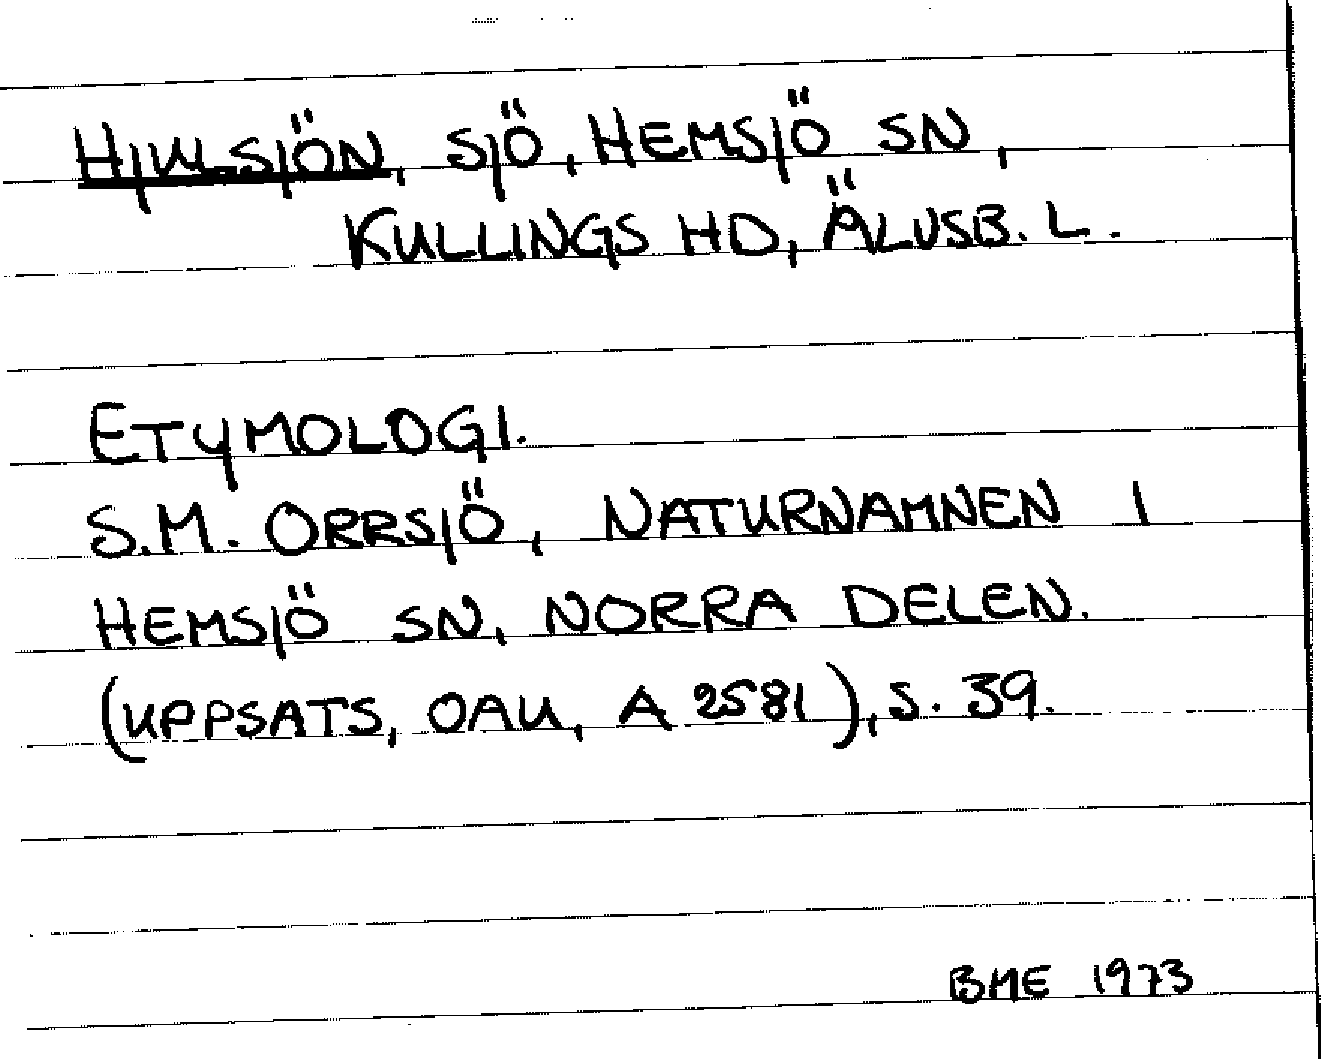 HJULSJÖN, SJÖ, HEMSJÖ SN,
KULLINGS HD, ÄLVSB. L.
ETYMOLOGI.
S.M. ORRSJÖ, NATURNAMNEN I
HEMSJÖ SN, NORRA DELEN.
(UPPSATS, OAU, A 2581), S. 39.
BME 1973